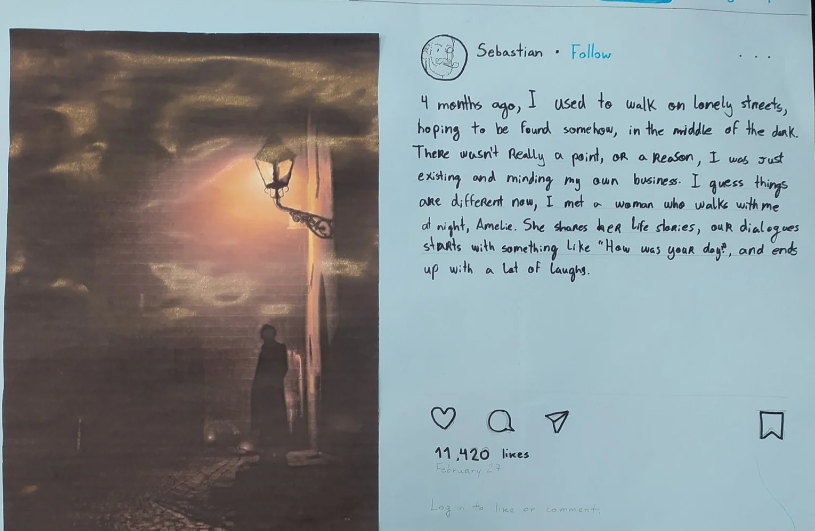 Sebastian • Follow
4 months ago, I used to walk on lonely streets,
hoping to be found somehow, in the middle of the dark.
There wasn't really a point, or a reason, I was just
existing and minding my own business. I guess things
are different now, I met a woman who walks with me
at night, Amelie. She shares her life stories, our dialogues
starts with something like "How was your day?", and ends
up with a lot of laughs.
11,420 likes
February 27
Log in to like or comment.